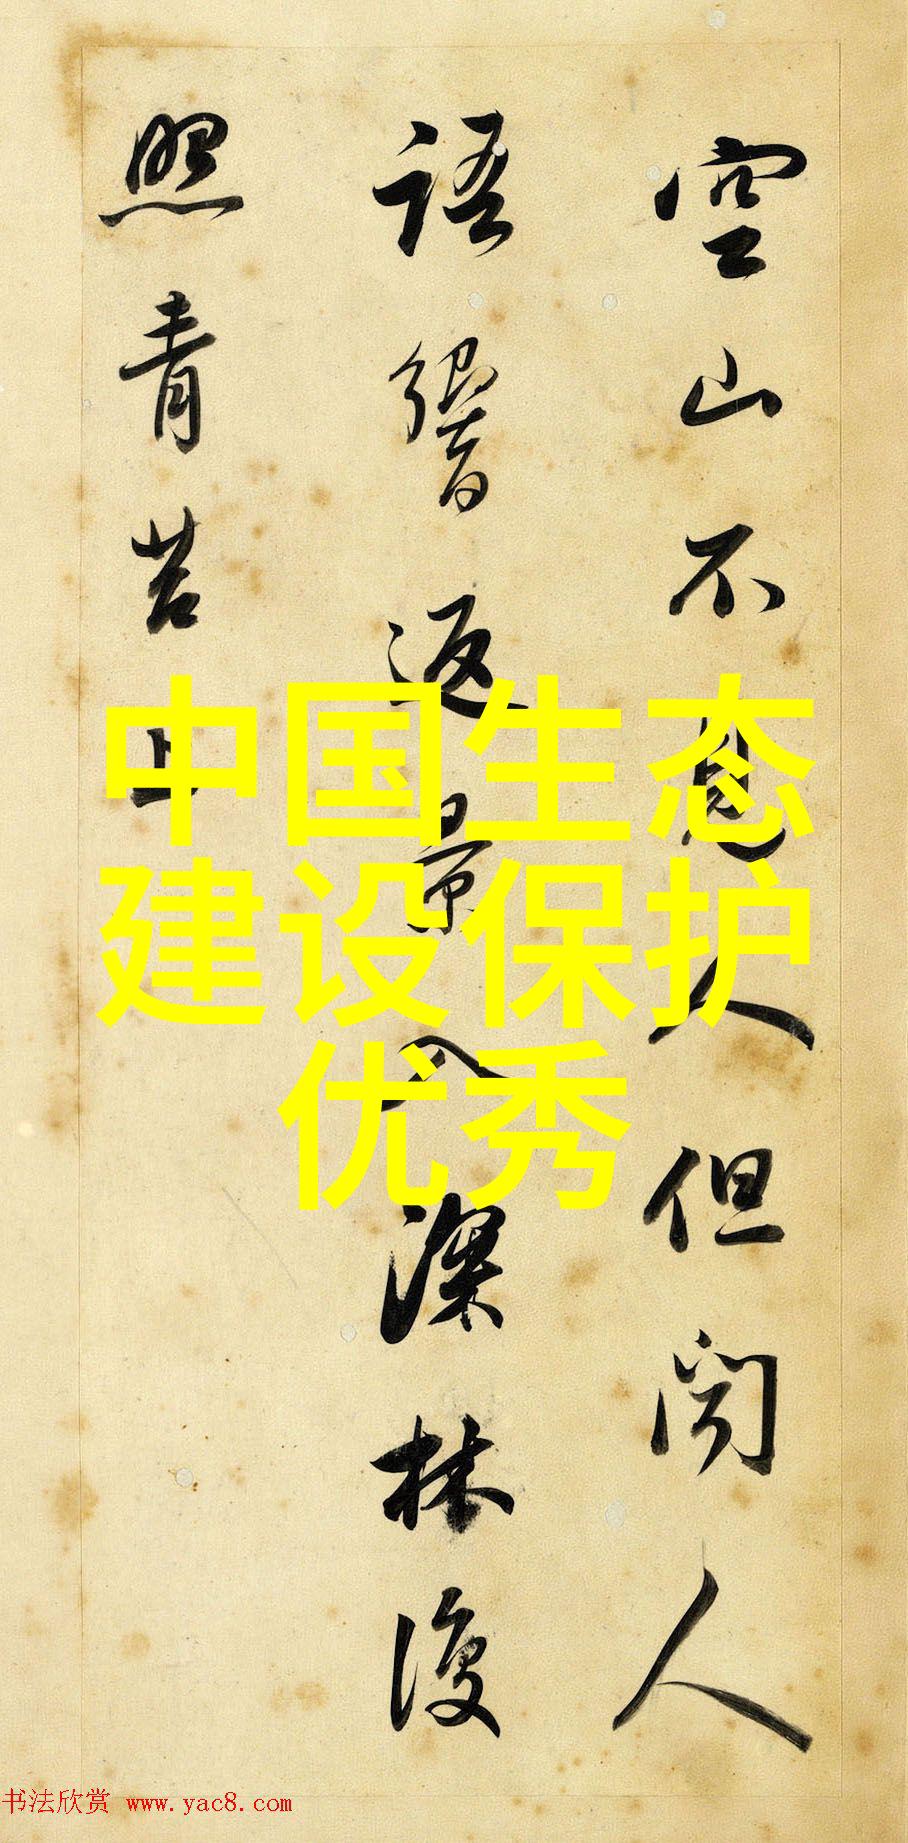 空山不見人但聞人
語響返景入深林復
照青苔上
中国生态
建设保护
优秀
书法欣赏 www.yac8.com